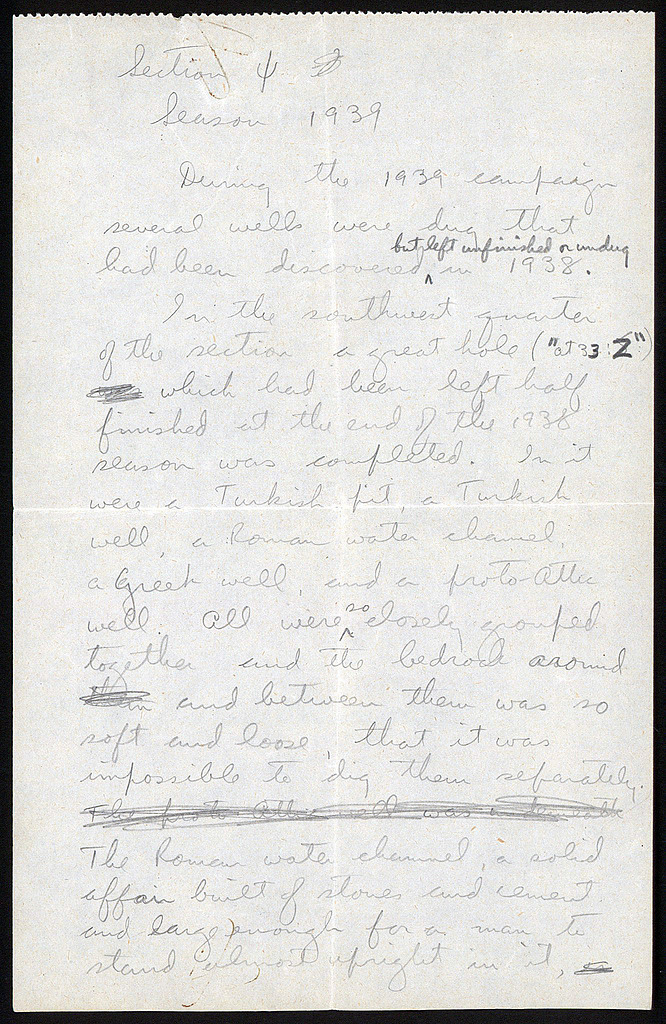 Section Ψ
Season 1939
During the 1939 campaign
several wells were dug that
had been discovered but left unfinished or undug in 1938.
In the southwest quarter
of the section a great hole ("at 33:Z")
which had been left half
finished at the end of the 1938
season was completed. In it
were a Turkish pit, a Turkish
well, a Roman water channel,
a Greek well, and a proto-Attic
well. All were so closely grouped
together and the bedrock around
and between them was so
soft and loose, that it was
impossible to dig them separately.
The proto-Attic well was underneath
The Roman water channel, a solid
affair built of stones and cement
and large enough for a man to
stand almost upright in it,